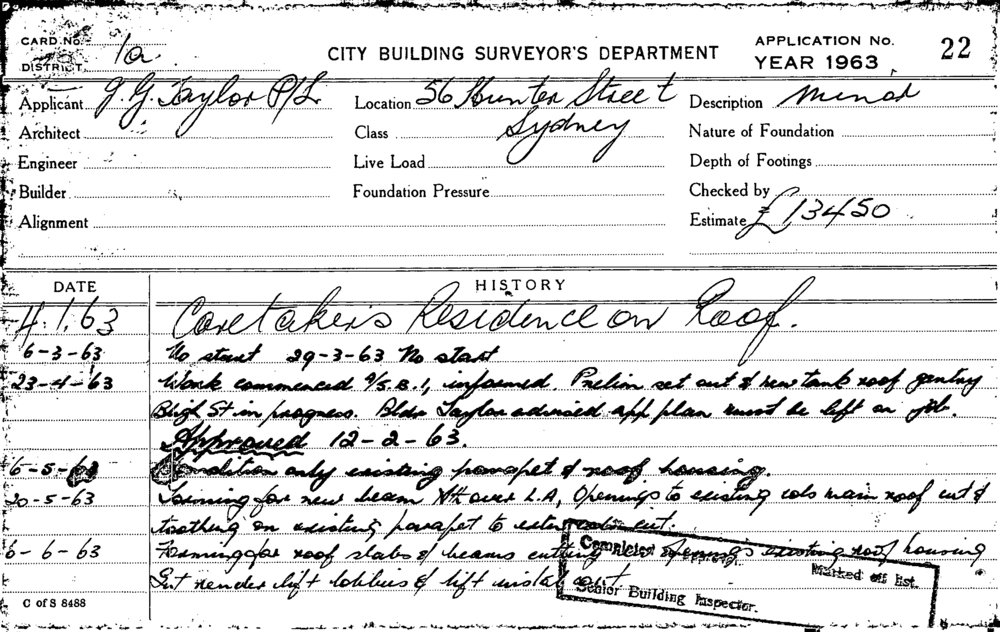 CARD No. 1a
DISTRICT
CITY BUILDING SURVEYOR'S DEPARTMENT
APPLICATION No. 22
YEAR 1963
Applicant J. G. Taylor P/L
Location 56 Hunter Street
Sydney
Description minor
Architect
Class
Nature of Foundation
Engineer
Live Load
Depth of Footings
Builder
Foundation Pressure
Checked by
Alignment
Estimate £13450
DATE
HISTORY
4.1.63 Caretaker's Residence on Roof.
6-3-63 No start 29-3-63 No start
23-4-63 Work commenced informed. Prelim set out & new tank roof gantry
Bligh St in progress. Bldr Taylor advised app plan must be left on job.
Approved 12-2-63.
6-5-63 Demolition only existing parapet & roof housing.
20-5-63 Forming for new beam over L.A, Openings to existing cols main roof cut &
toothing on existing parapet to
6-6-63 Forming for roof slabs & beams cutting openings existing roof housing
Int render lift lobbies & lift
Completed
Marked off list.
Senior Building Inspector.
C of S 8488